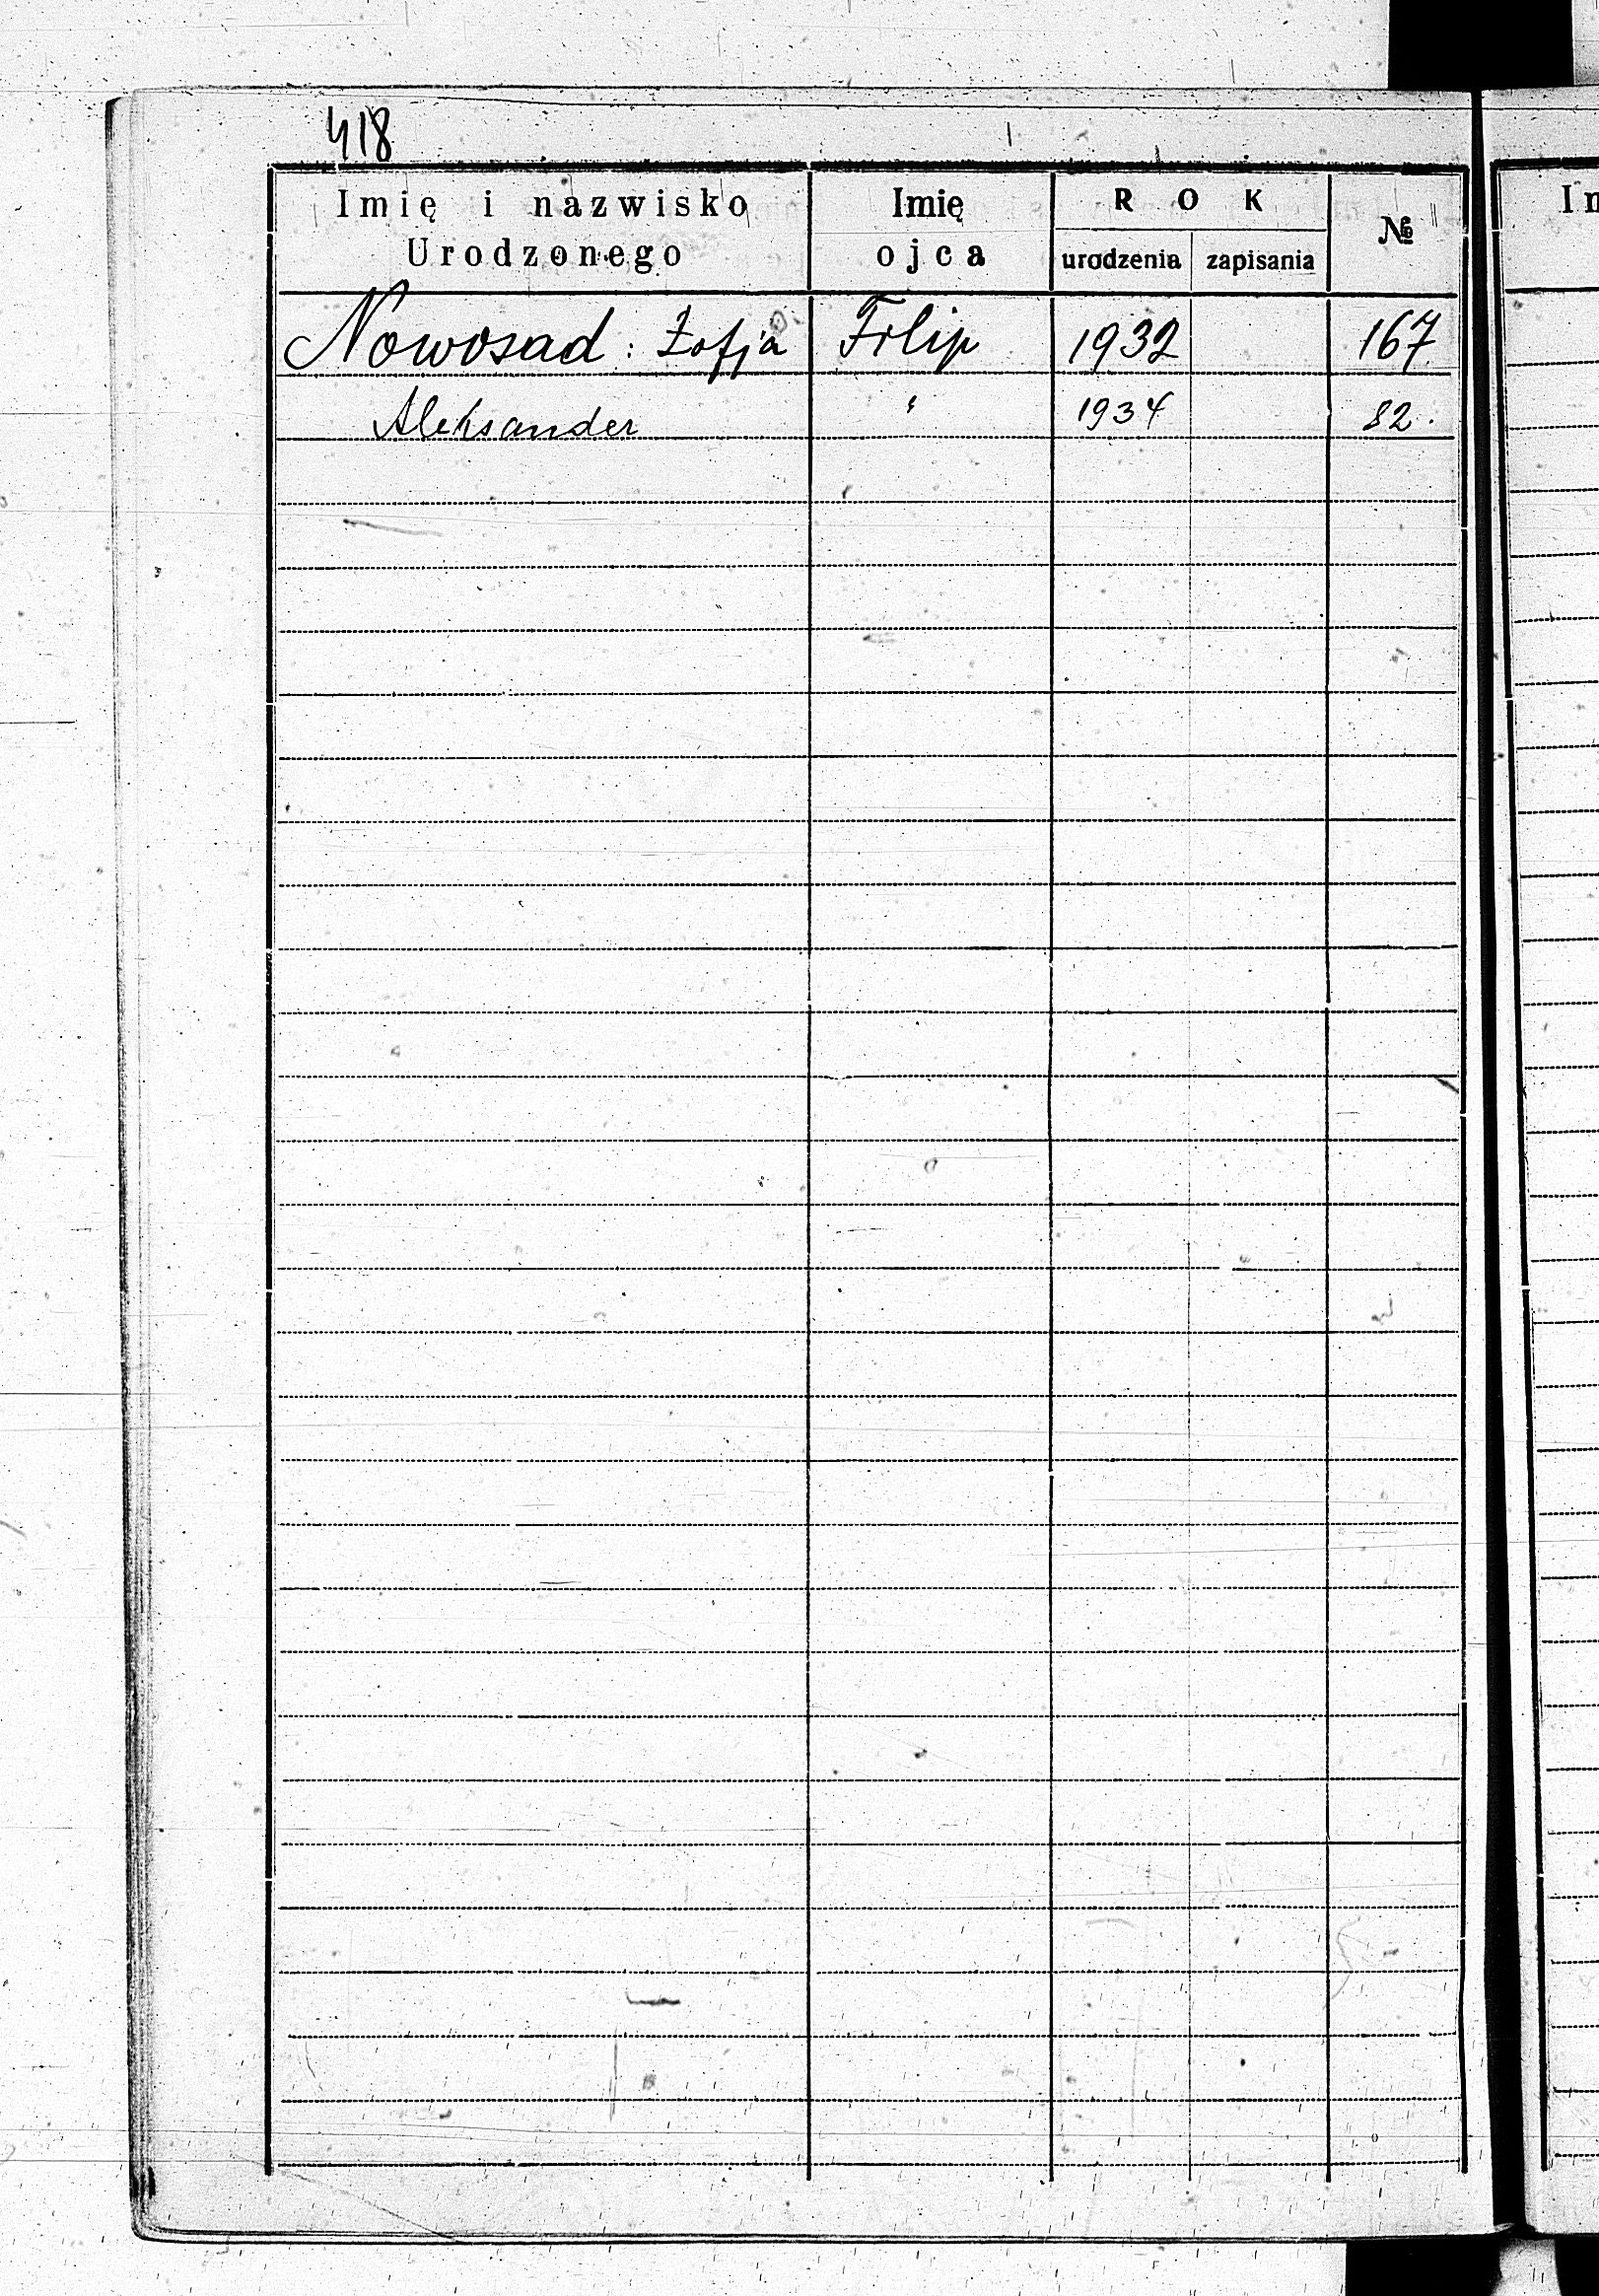 418
Imię i nazwisko Urodzonego Imię ojca ROK urodzenia zapisania №
Nowosad: Zofja Filip 1932 167
Aleksander " 1934 82.